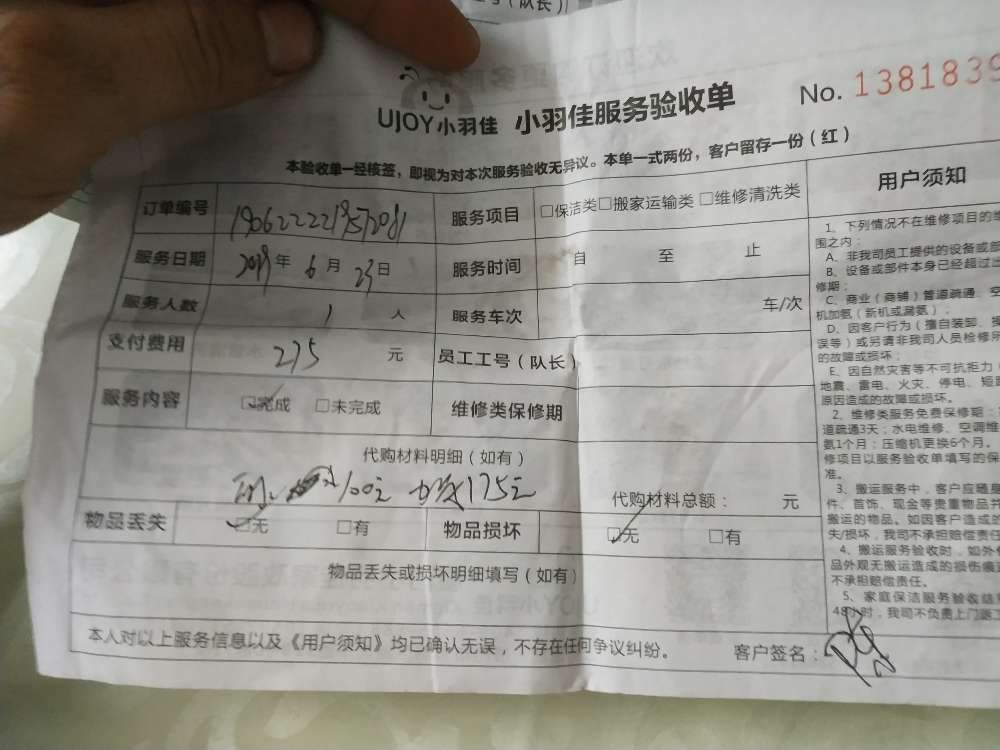 号（队长）
UJOY小羽佳 小羽佳服务验收单 No. 1381839
本验收单一经核签，即视为对本次服务验收无异议。本单一式两份，客户留存一份（红）
订单编号 服务项目 □保洁类□搬家运输类□维修清洗类
服务日期 2019年6月23日 服务时间 自 至 止
服务人数 1 人 服务车次 车/次
支付费用 275 元 员工工号（队长）
服务内容 ☑完成 □未完成 维修类保修期
代购材料明细（如有）
100元 175元
代购材料总额： 元
物品丢失 ☑无 □有 物品损坏 ☑无 □有
物品丢失或损坏明细填写（如有）
本人对以上服务信息以及《用户须知》均已确认无误，不存在任何争议纠纷。 客户签名：
用户须知
1、下列情况不在维修项目的
围之内：
A、非我司员工提供的设备或部
B、设备或部件本身已经超过
修期；
C、商业（商铺）管道疏通、空
机加氨（新机或漏氨）；
D、因客户行为（擅自装卸、
误等）或另请非我司人员检修
的故障或损坏；
E、因自然灾害等不可抗拒力（
地震、雷电、火灾、停电、短
原因造成的故障或损坏。
2、维修类服务免费保修期：
道疏通3天；水电维修、空调维
氨1个月；压缩机更换6个月。
修项目以服务验收单填写的保
准。
3、搬运服务中，客户应随
件、首饰、现金等贵重物品
搬运的物品。如因客户造成
失/损坏，我司不承担赔偿责任
4、搬运服务验收时，如外
品外观无搬运造成的损伤痕
不承担赔偿责任。
5、家庭保洁服务验收结
48小时，我司不负责上门返